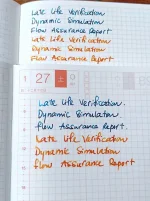 Late Life Verification
Dynamic Simulation
Flow Assurance Report
Late Life Verification
Dynamic Simulation
Flow Assurance Report
1 27 土
Late Life Verification
Dynamic Simulation
flow Assurance Report
Late Life Verification
Dynamic Simulation
flow Assurance Report